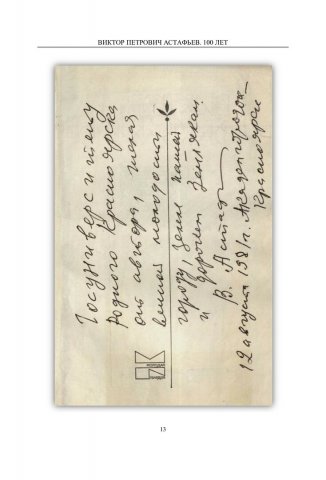 ВИКТОР ПЕТРОВИЧ АСТАФЬЕВ. 100 ЛЕТ
Госуниверситету
родного Красноярска
от автора, желая
вечной молодости
городу, земле нашей
и дорогим землякам.
В. Астафьев
12 августа 1981 г. Академгородок
Красноярск
13